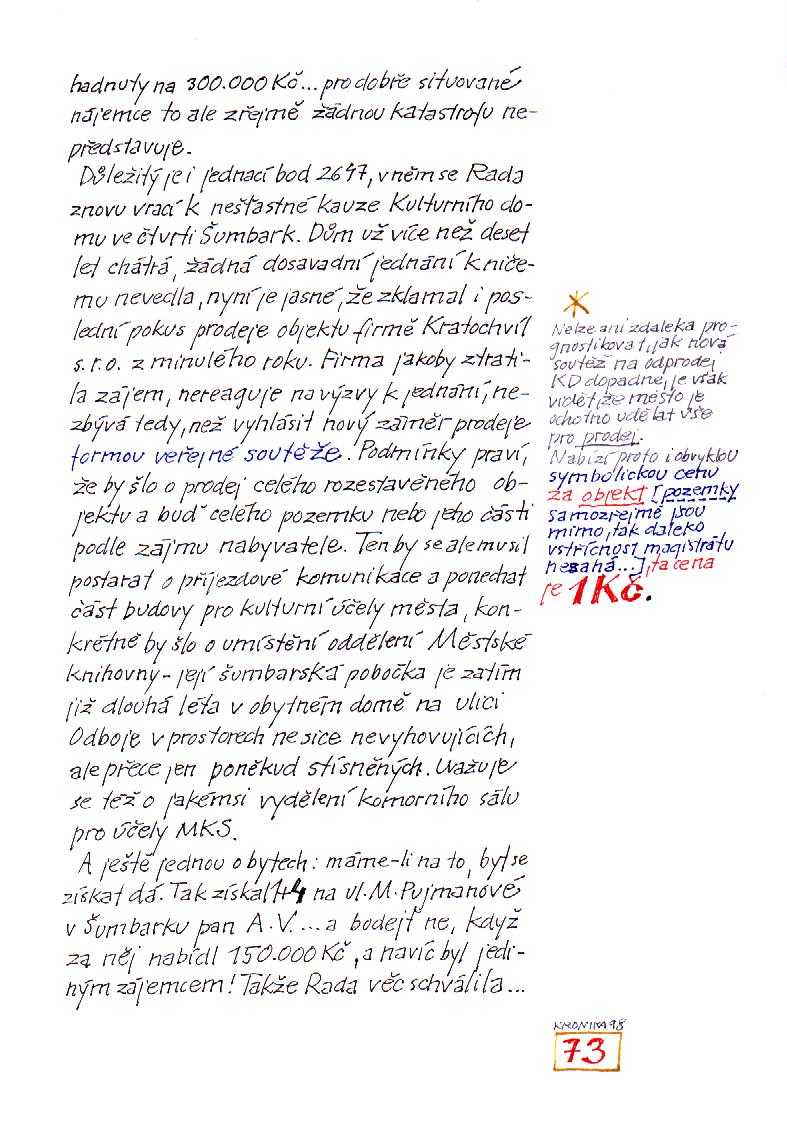 hadnuty na 300.000 Kč... pro dobře situované
nájemce to ale zřejmě žádnou katastrofu ne-
představuje.
Důležitý je i jednací bod 2647, v něm se Rada
znovu vrací k nešťastné kauze Kulturního do-
mu ve čtvrti Šumbark. Dům už více než deset
let chátrá, žádná dosavadní jednání k niče-
mu nevedla, nyní je jasné, že zklamal i pos-
lední pokus prodeje objektu firmě Kratochvíl
s.r.o. z minulého roku. Firma jakoby ztrati-
la zájem, nereaguje na výzvy k jednání, ne-
zbývá tedy, než vyhlásit nový záměr prodeje
formou veřejné soutěže. Podmínky praví,
že by šlo o prodej celého rozestavěného ob-
jektu a buď celého pozemku nebo jeho části
podle zájmu nabyvatele. Ten by se ale musil
postarat o příjezdové komunikace a ponechat
část budovy pro kulturní účely města, kon-
krétně by šlo o umístění oddělení Městské
knihovny - její šumbarská pobočka je zatím
již dlouhá léta v obytném domě na ulici
Odboje v prostorech ne sice nevyhovujících,
ale přece jen poněkud stísněných. Uvažuje
se též o jakémsi vydělení komorního sálu
pro účely MKS.
A ještě jednou o bytech: máme-li na to, byt se
získat dá. Tak získal 1+4 na ul. M. Pujmanové
v Šumbarku pan A.V. ... a bodejť ne, když
za něj nabídl 150.000 Kč, a navíc byl jedi-
ným zájemcem! Takže Rada věc schválila...
*
Nelze ani zdaleka pro-
gnostikovat, jak nová
soutěž na odprodej
KD dopadne, je však
vidět, že město je
ochotno udělat vše
pro prodej.
Nabízí proto i obvyklou
symbolickou cenu
za objekt [pozemky
samozřejmě jsou
mimo, tak daleko
vstřícnost magistrátu
nesahá...], ta cena
je 1 Kč.
KRONIKA 98
73